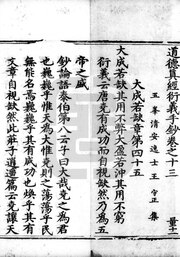 道德真經衍義手鈔卷之十三
王峯清安逸士王守正集
大成若缺章第四十五
大成若缺其用不弊大盈若沖其用不窮
衍義云唐堯有成功而自視缺然乃為五
帝之盛
鈔論語泰伯第八云子曰大哉堯之為君
也巍巍乎惟天為大惟堯則之蕩蕩乎民
無能名焉巍巍乎其有成功也煥乎其有
文章自視缺然此莊子逍遙篇云堯讓天